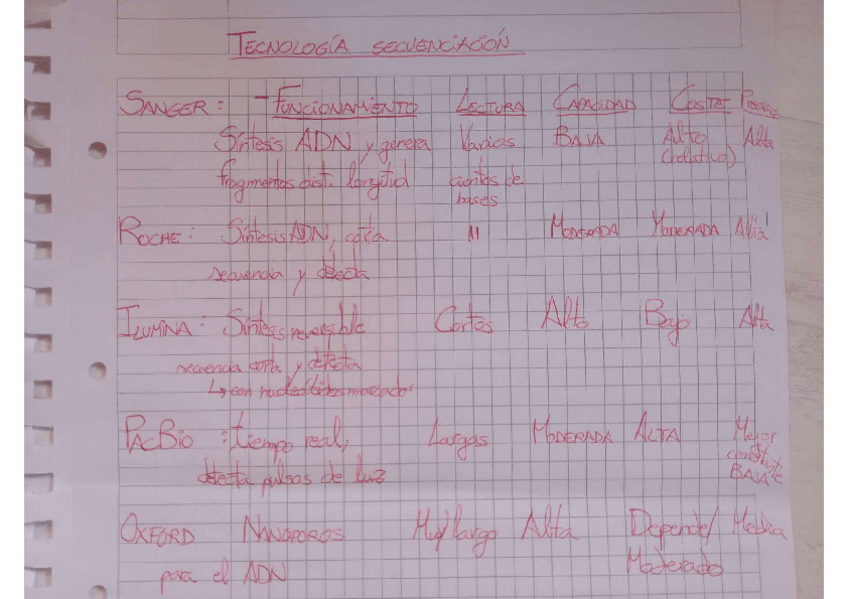 TECNOLOGÍA SECUENCIACIÓN
SANGER: - FUNCIONAMIENTO LECTURA CAPACIDAD COSTE PRECISIÓN
Síntesis ADN y genera Varios BAJA Alto Alta
fragmentos dist. longitud cientos de (relativo)
bases
ROCHE: Síntesis ADN, corta 11 MODERADA MODERADA Alta
secuencia y detecta
ILUMINA: Síntesis reversible Cortos Alto Bajo Alta
secuencia corta y detecta
↳ con nucleótidos marcados
PACBIO: tiempo real, Largas MODERADA ALTA Mejor
detecta pulsos de luz BAJA
OXFORD NANOPOROS Muy largo Alta Depende/ Media
para el ADN Moderado